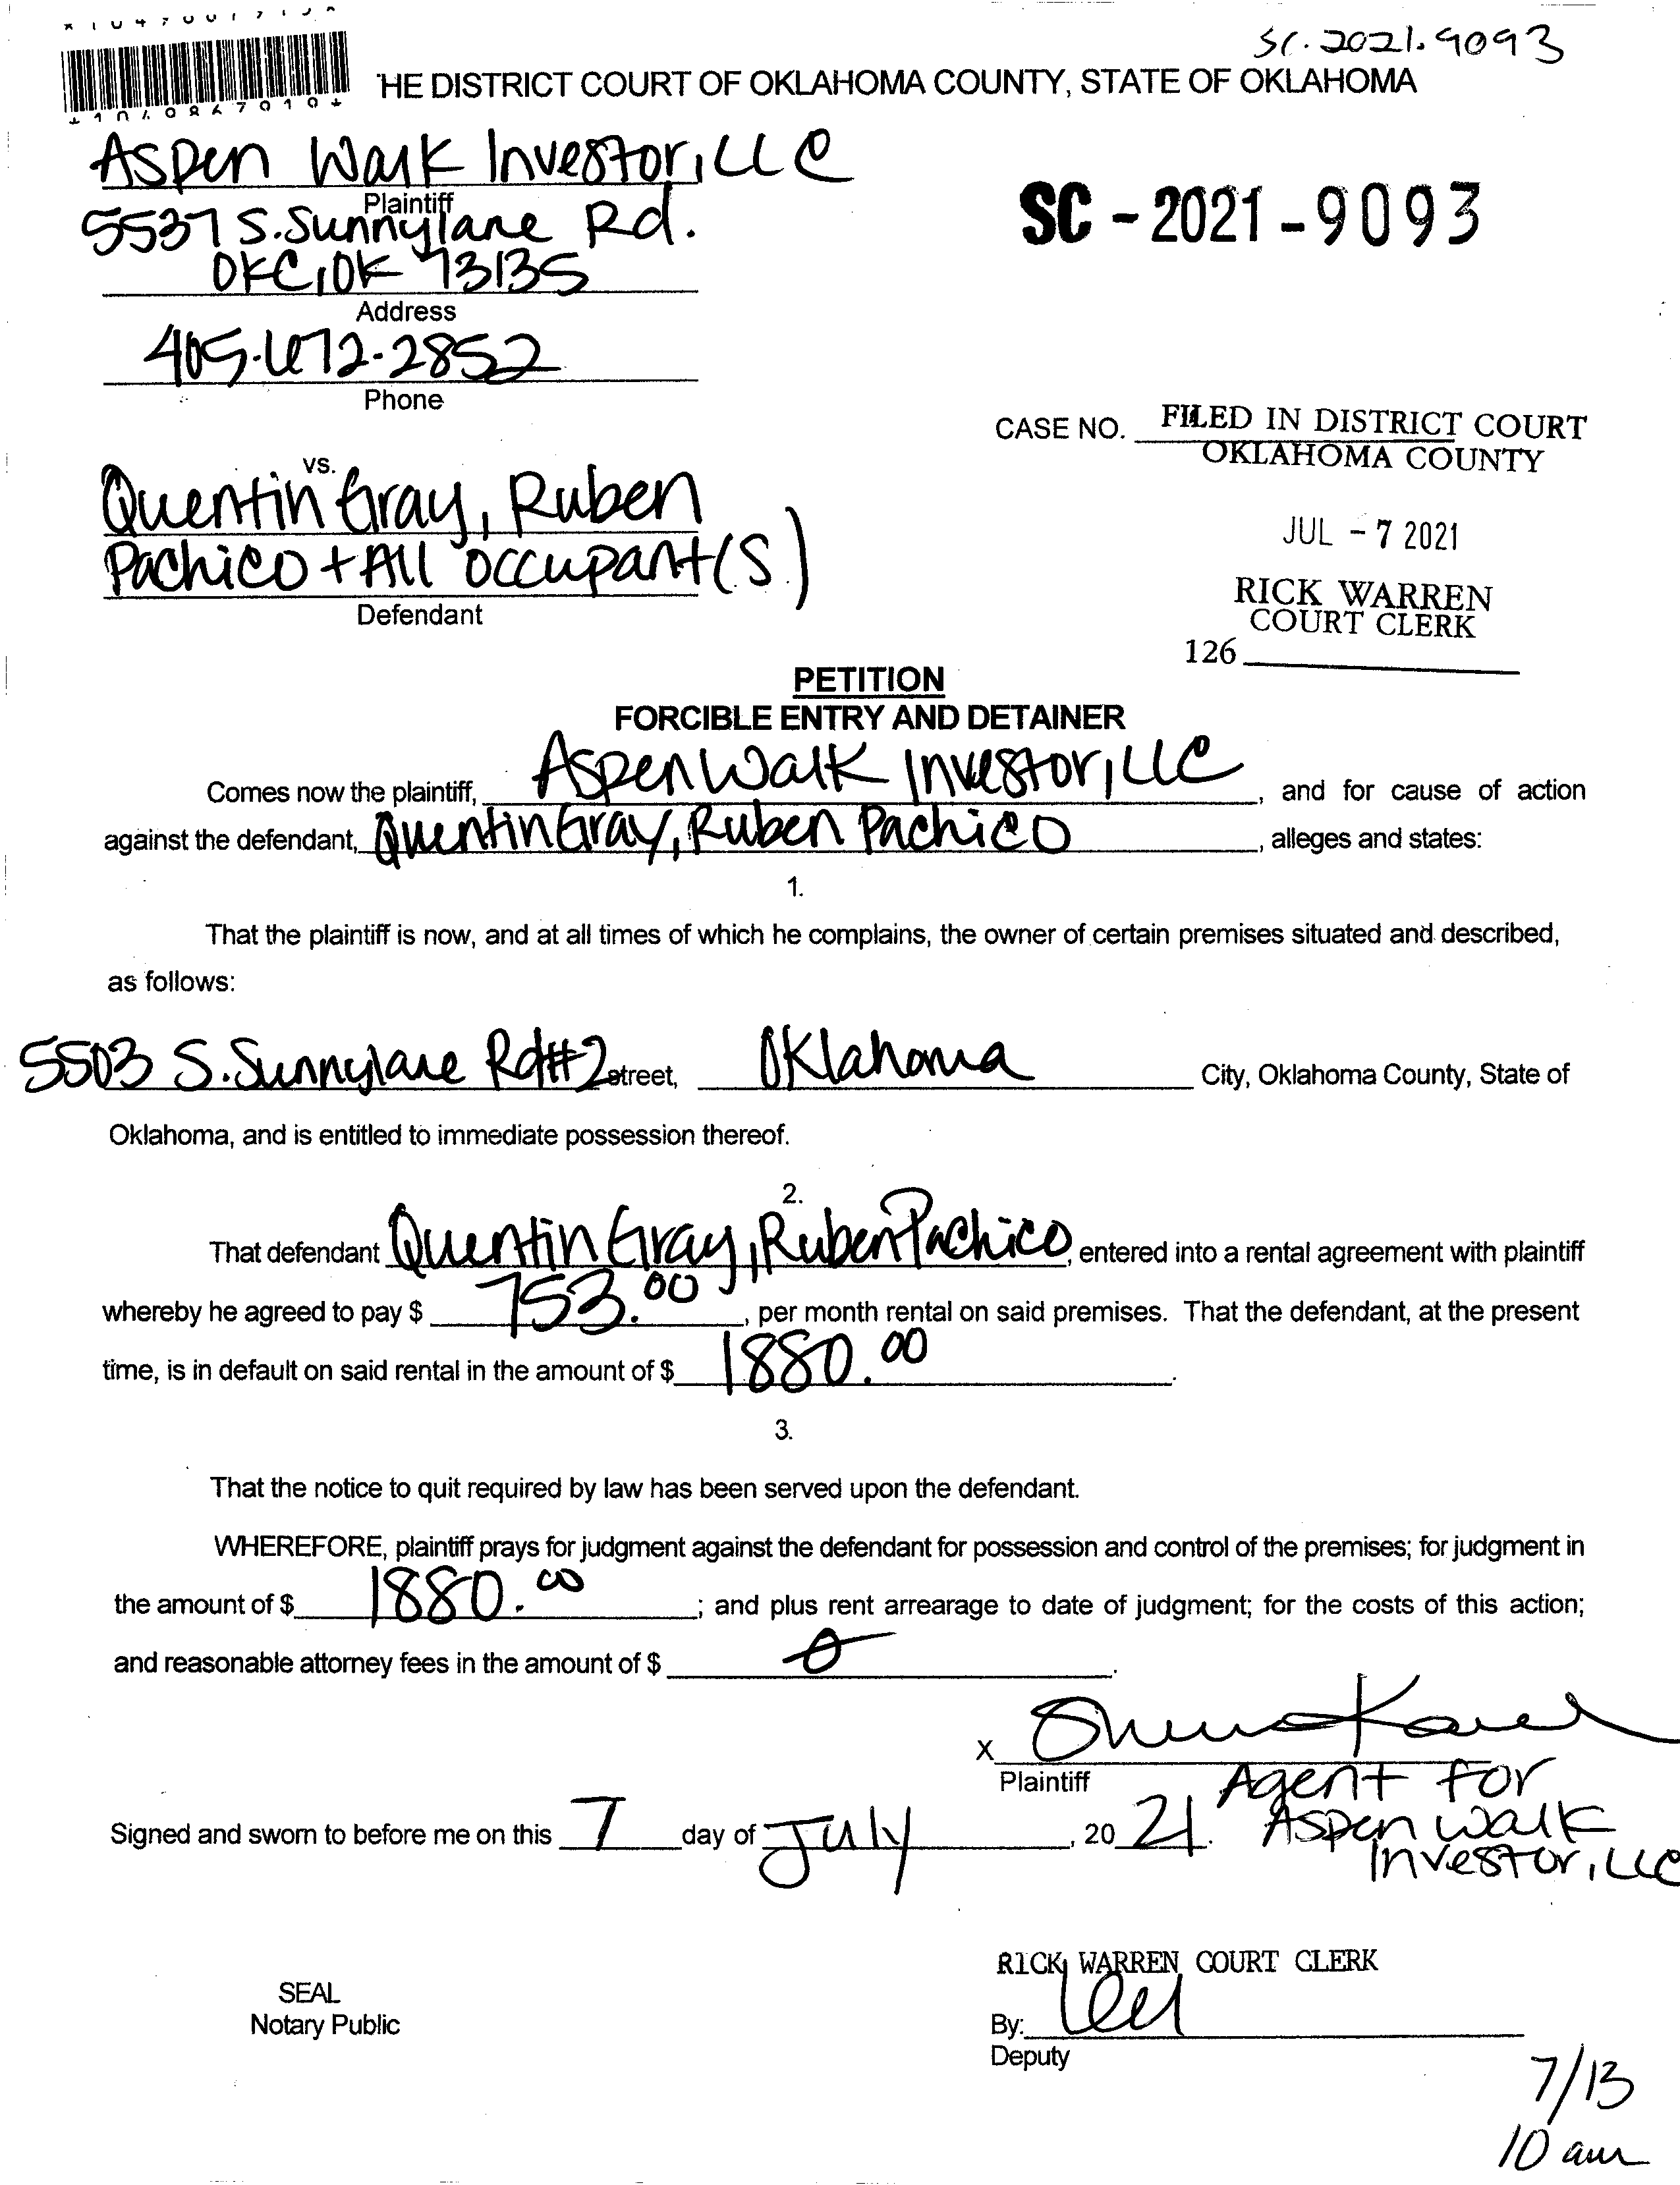 SC.2021.9093
HE DISTRICT COURT OF OKLAHOMA COUNTY, STATE OF OKLAHOMA
Aspen Walk Investor, LLC
Plaintiff
5537 S. Sunnylane Rd.
OKC, OK 73135
Address
405-672-2852
Phone
SC - 2021 - 9093
CASE NO.
FILED IN DISTRICT COURT
OKLAHOMA COUNTY
JUL - 7 2021
RICK WARREN
COURT CLERK
126
vs.
Quentin Gray, Ruben
Pachico + All occupant(s)
Defendant
PETITION
FORCIBLE ENTRY AND DETAINER
Comes now the plaintiff, Aspen Walk Investor, LLC, and for cause of action
against the defendant, Quentin Gray, Ruben Pachico, alleges and states:
1.
That the plaintiff is now, and at all times of which he complains, the owner of certain premises situated and described,
as follows:
5503 S. Sunnylane Rd #2 street, Oklahoma City, Oklahoma County, State of
Oklahoma, and is entitled to immediate possession thereof.
2.
That defendant Quentin Gray, Ruben Pachico, entered into a rental agreement with plaintiff
whereby he agreed to pay $ 753.00, per month rental on said premises. That the defendant, at the present
time, is in default on said rental in the amount of $ 1880.00.
3.
That the notice to quit required by law has been served upon the defendant.
WHEREFORE, plaintiff prays for judgment against the defendant for possession and control of the premises; for judgment in
the amount of $ 1880.00; and plus rent arrearage to date of judgment; for the costs of this action;
and reasonable attorney fees in the amount of $ 0.
X
Plaintiff
Agent for
Aspen Walk
Investor, LLC
Signed and sworn to before me on this 7 day of July, 2021.
RICK WARREN COURT CLERK
SEAL
Notary Public
By:
Deputy
7/13
10 am